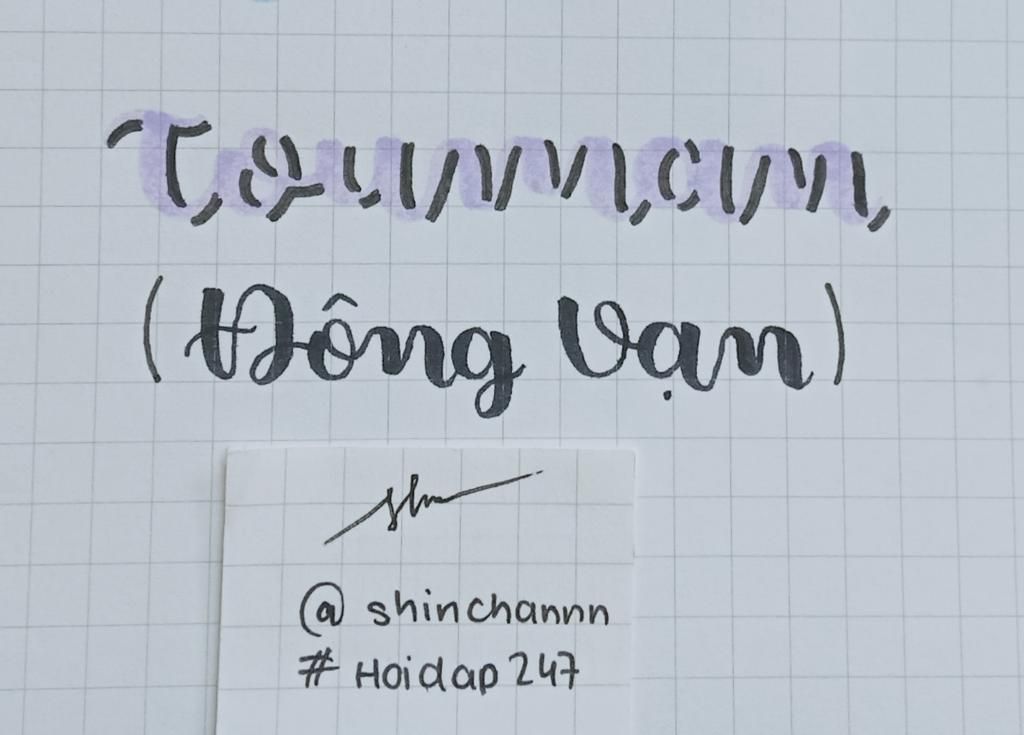 Tounman
(Đông Vạn)
shn
@shinchannn
#Hoidap247